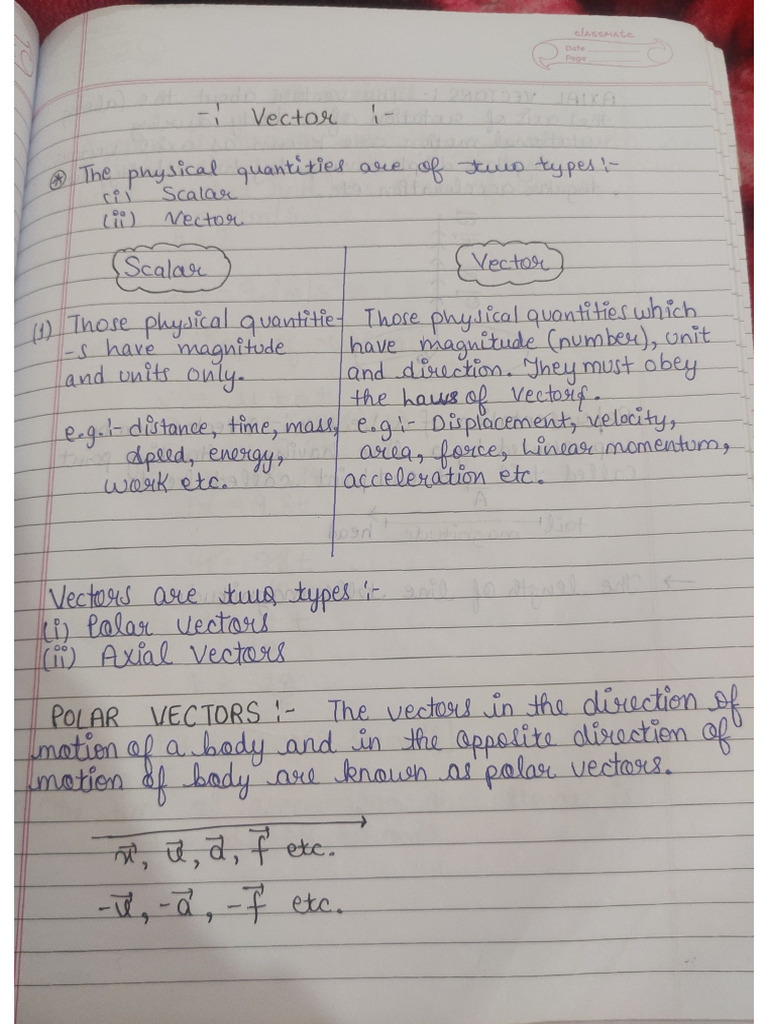 classmate
Date
Page
-: Vector :-
⊛ The physical quantities are of two types:-
(i) Scalar
(ii) Vector
Scalar
(1) Those physical quantitie-
-s have magnitude
and units only.
e.g.:- distance, time, mass,
speed, energy,
work etc.
Vector
Those physical quantities which
have magnitude (number), unit
and direction. They must obey
the laws of vectors.
e.g:- Displacement, velocity,
area, force, Linear momentum,
acceleration etc.
Vectors are two types:-
(i) Polar vectors
(ii) Axial vectors
POLAR VECTORS :- The vectors in the direction of
motion of a body and in the opposite direction of
motion of body are known as polar vectors.
x⃗, v⃗, a⃗, f⃗ etc.
-v⃗, -a⃗, -f⃗ etc.